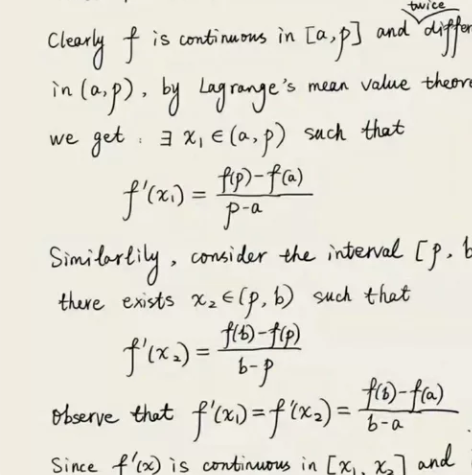 twice
Clearly f is continuous in [a,p] and differ
in (a,p), by Lagrange's mean value theore
we get : ∃ x₁ ∈ (a,p) such that
f'(x₁) = f(p)-f(a) / p-a
Similartily, consider the interval [p, b
there exists x₂∈(p, b) such that
f'(x₂) = f(b)-f(p) / b-p
Observe that f'(x₁)=f'(x₂)= f(b)-f(a) / b-a .
Since f'(x) is continuous in [x₁, x₂] and